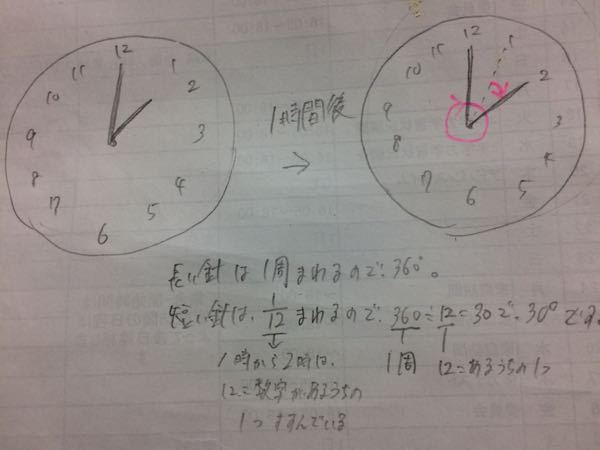 12
11 1
10 2
9 3
8 4
7 5
6
1時間後
→
12
11 1
10 2
9 3
8 4
7 5
6
長い針は1周まわるので、360°。
短い針は、1/12まわるので、360÷12=30で、30°です。
1時から2時は、
12こ数字があるうちの
1つすすんでいる
1周 12こあるうちの1つ